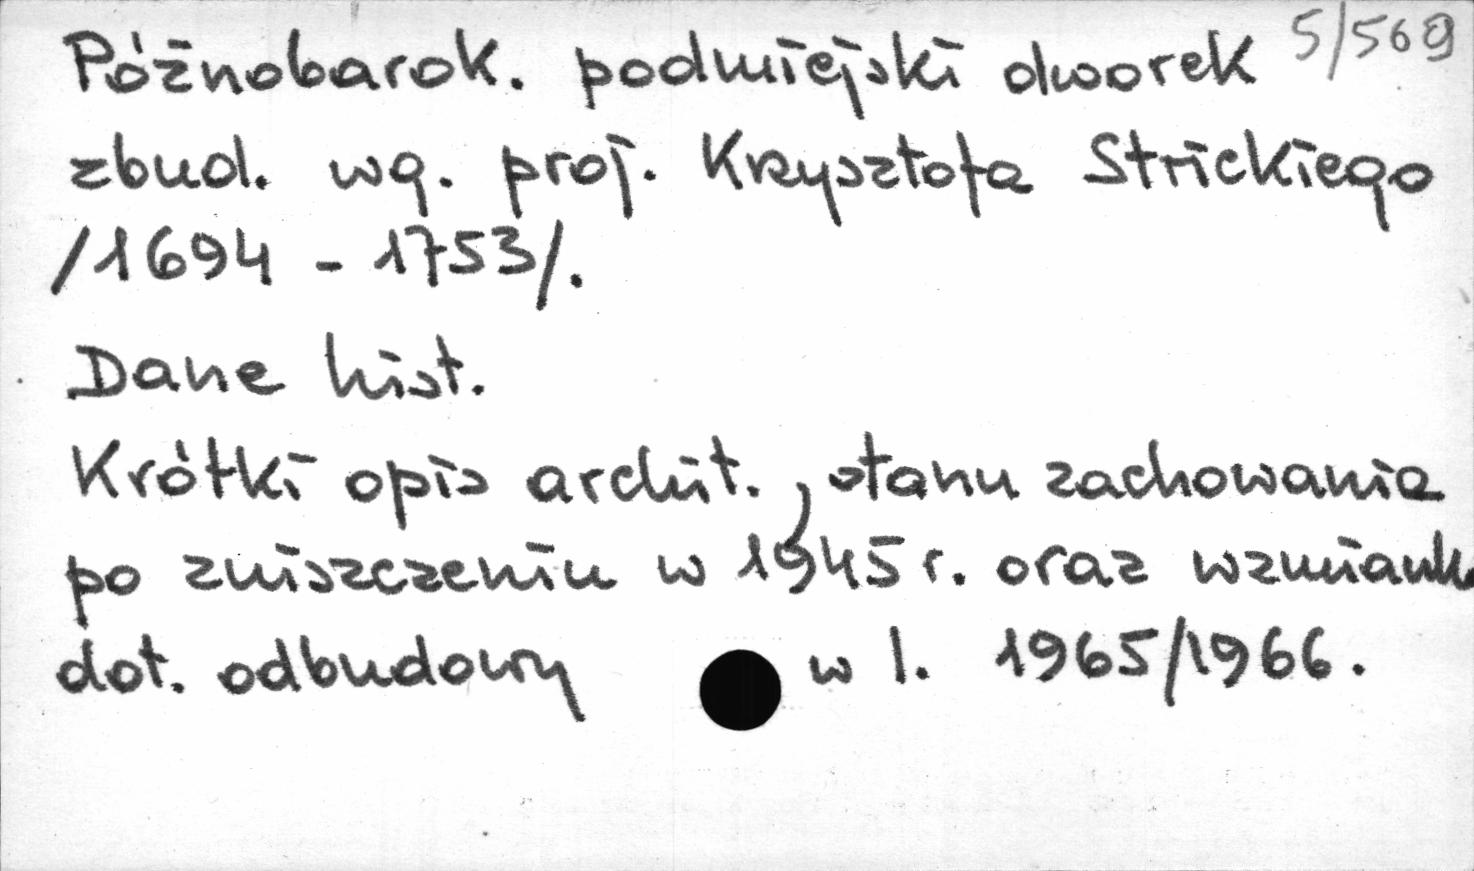 Późnobarok. podmiejski dworek 5/569
zbud. wg. proj. Krzysztofa Strickiego
/1694 - 1753/.
Dane hist.
Krótki opis archit., stanu zachowania
po zniszczeniu w 1945 r. oraz wzmiank.
dot. odbudowy w l. 1965/1966.